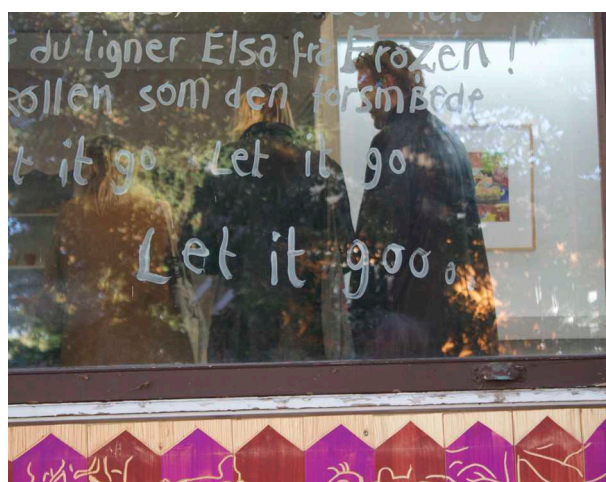 du ligner Elsa fra Frozen!"
rollen som den forsmædede
it go Let it go
Let it goo.